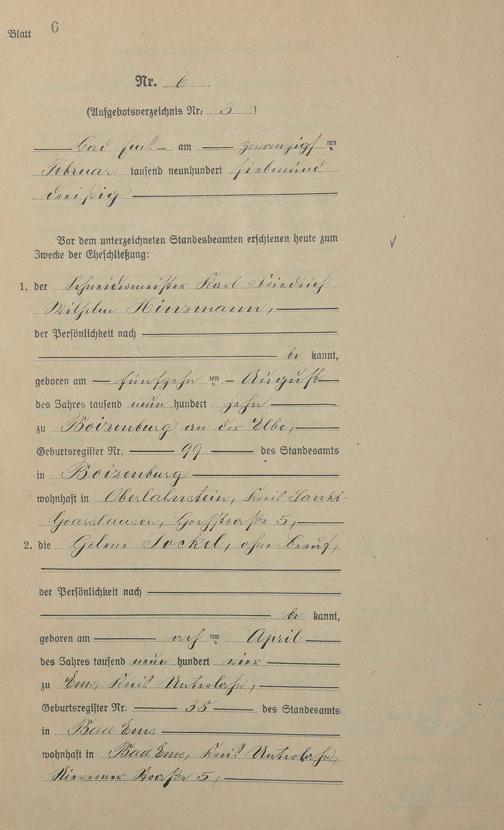 Blatt 6
Nr. 6
(Aufgebotsverzeichnis Nr. 3)
Bad Ems am zwanzigsten
Februar tausend neunhundert siebenund
dreißig
Vor dem unterzeichneten Standesbeamten erschienen heute zum
Zwecke der Eheschließung:
1. der Schneidermeister Karl Friedrich
Wilhelm Hinzmann,
der Persönlichkeit nach
be kannt,
geboren am fünfzehn ten August
des Jahres tausend neun hundert zehn
zu Boizenburg an der Elbe,
Geburtsregister Nr. 99 des Standesamts
in Boizenburg
wohnhaft in Oberlahnstein, Kreis Sankt
Goarshausen, Hochstraße 5,
2. die Helene Sockel, ohne Beruf,
der Persönlichkeit nach
be kannt,
geboren am acht ten April
des Jahres tausend neun hundert vier
zu Ems, Kreis Unterlahn,
Geburtsregister Nr. 35 des Standesamts
in Bad Ems
wohnhaft in Bad Ems, Kreis Unterlahn,
Straße 5,